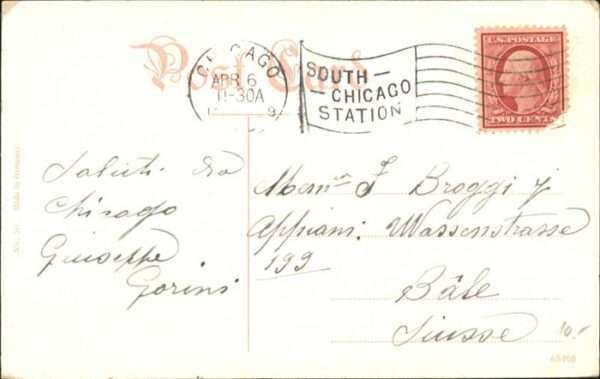 Post Card
CHICAGO
APR 6
11-30A
9
SOUTH
CHICAGO
STATION
U.S. POSTAGE
TWO CENTS
Saluti da
Chicago
Giuseppe
Gorini
F Broggi
Appiani. Wassenstrasse
199
Bâle
Suisse
10.-
Made in Germany